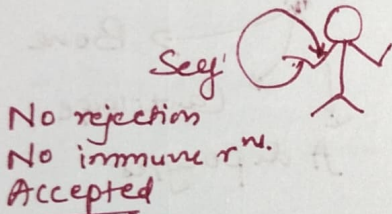 Self
No rejection
No immune rxn.
Accepted